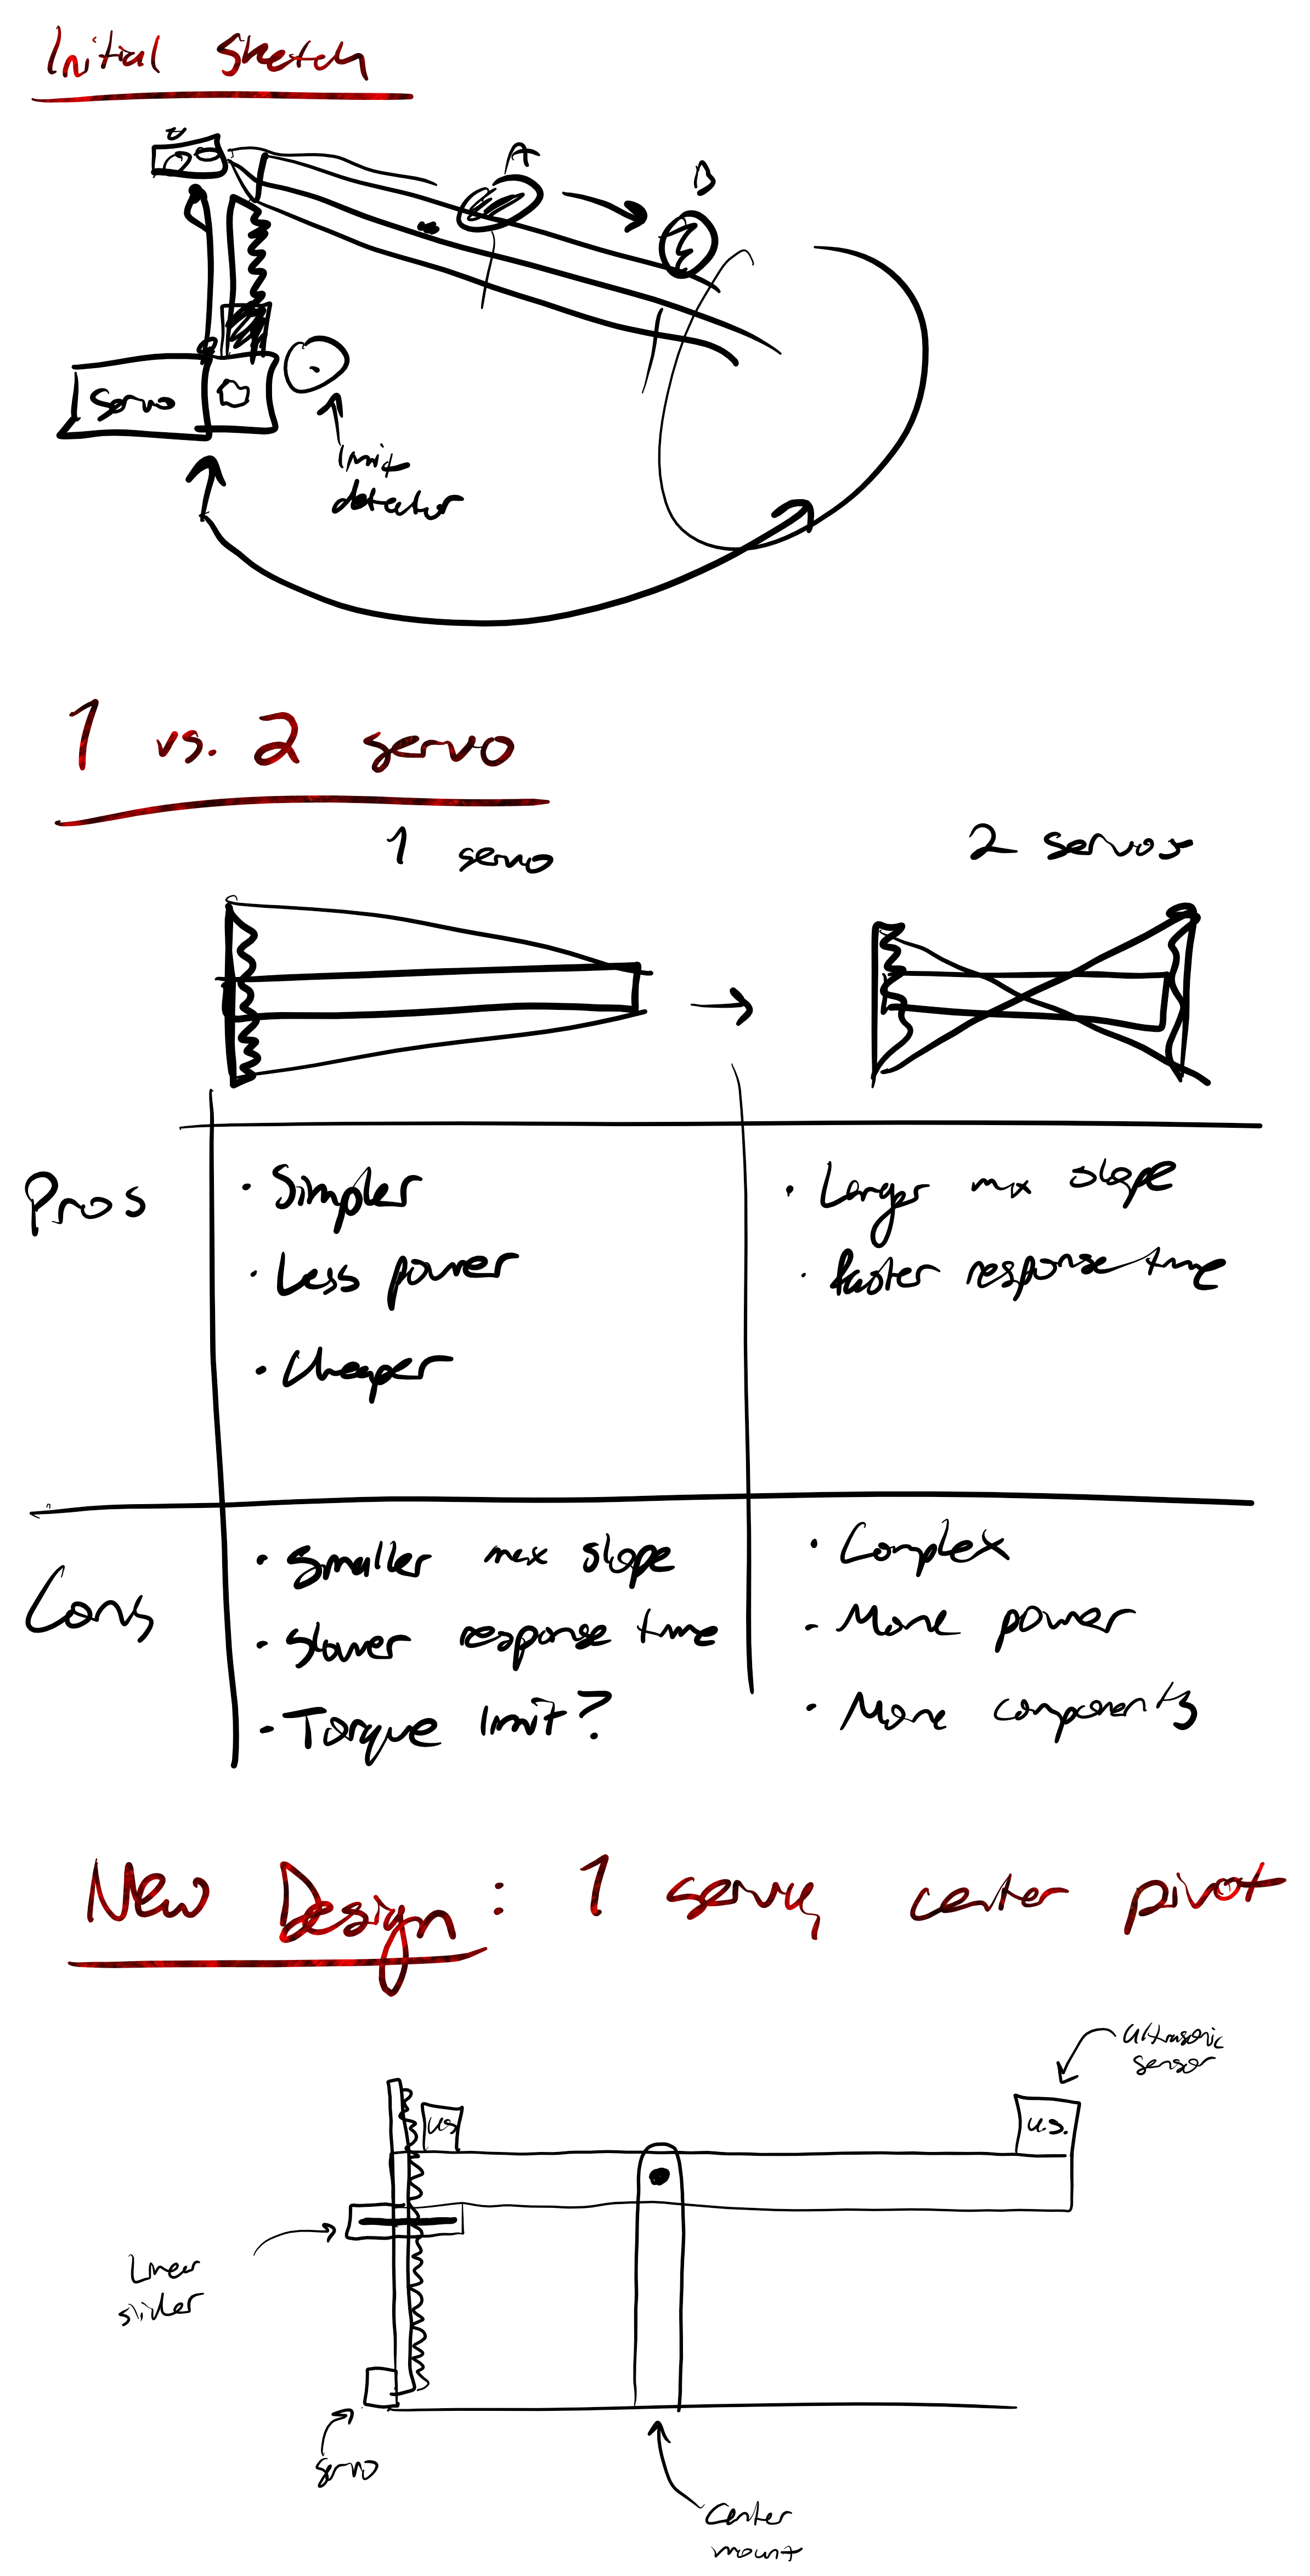 Initial sketch
A
B
servo
limit
detector
1 vs. 2 servo
1 servo
2 servos
Pros
• Simpler
• Less power
• Cheaper
• Larger max slope
• faster response time
Cons
• Smaller max slope
• Slower response time
• Torque limit?
• Complex
- More power
• More components
New Design: 1 servo, center pivot
ultrasonic
sensor
U.S.
U.S.
Linear
slider
servo
Center
mount